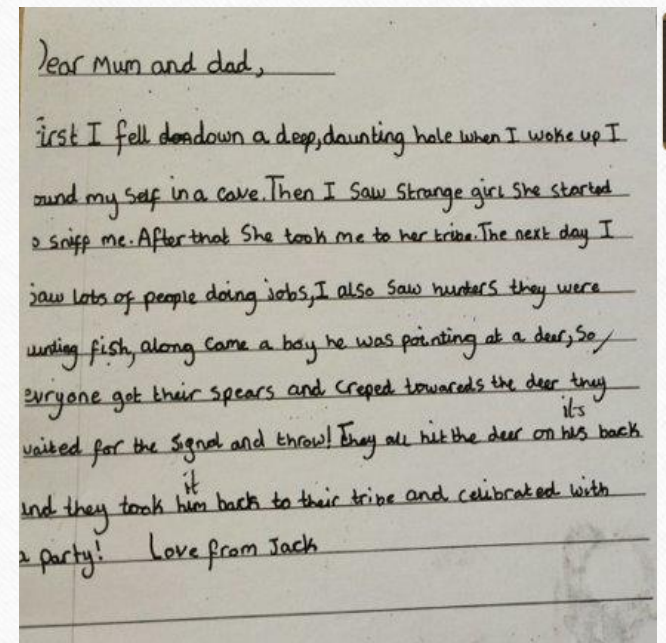 Dear Mum and dad,
irst I fell down a deep, daunting hole when I woke up I
ound my self in a cave. Then I Saw Strange girl She started
o sniff me. After that She took me to her tribe. The next day I
saw lots of people doing jobs, I also Saw hunters they were
unting fish, along Came a boy he was pointing at a deer, So
evryone got their spears and creped towareds the deer they
its
waited for the Signal and throw! They all hit the deer on his back
it
and they took him back to their tribe and celibrated with
a party! Love from Jack